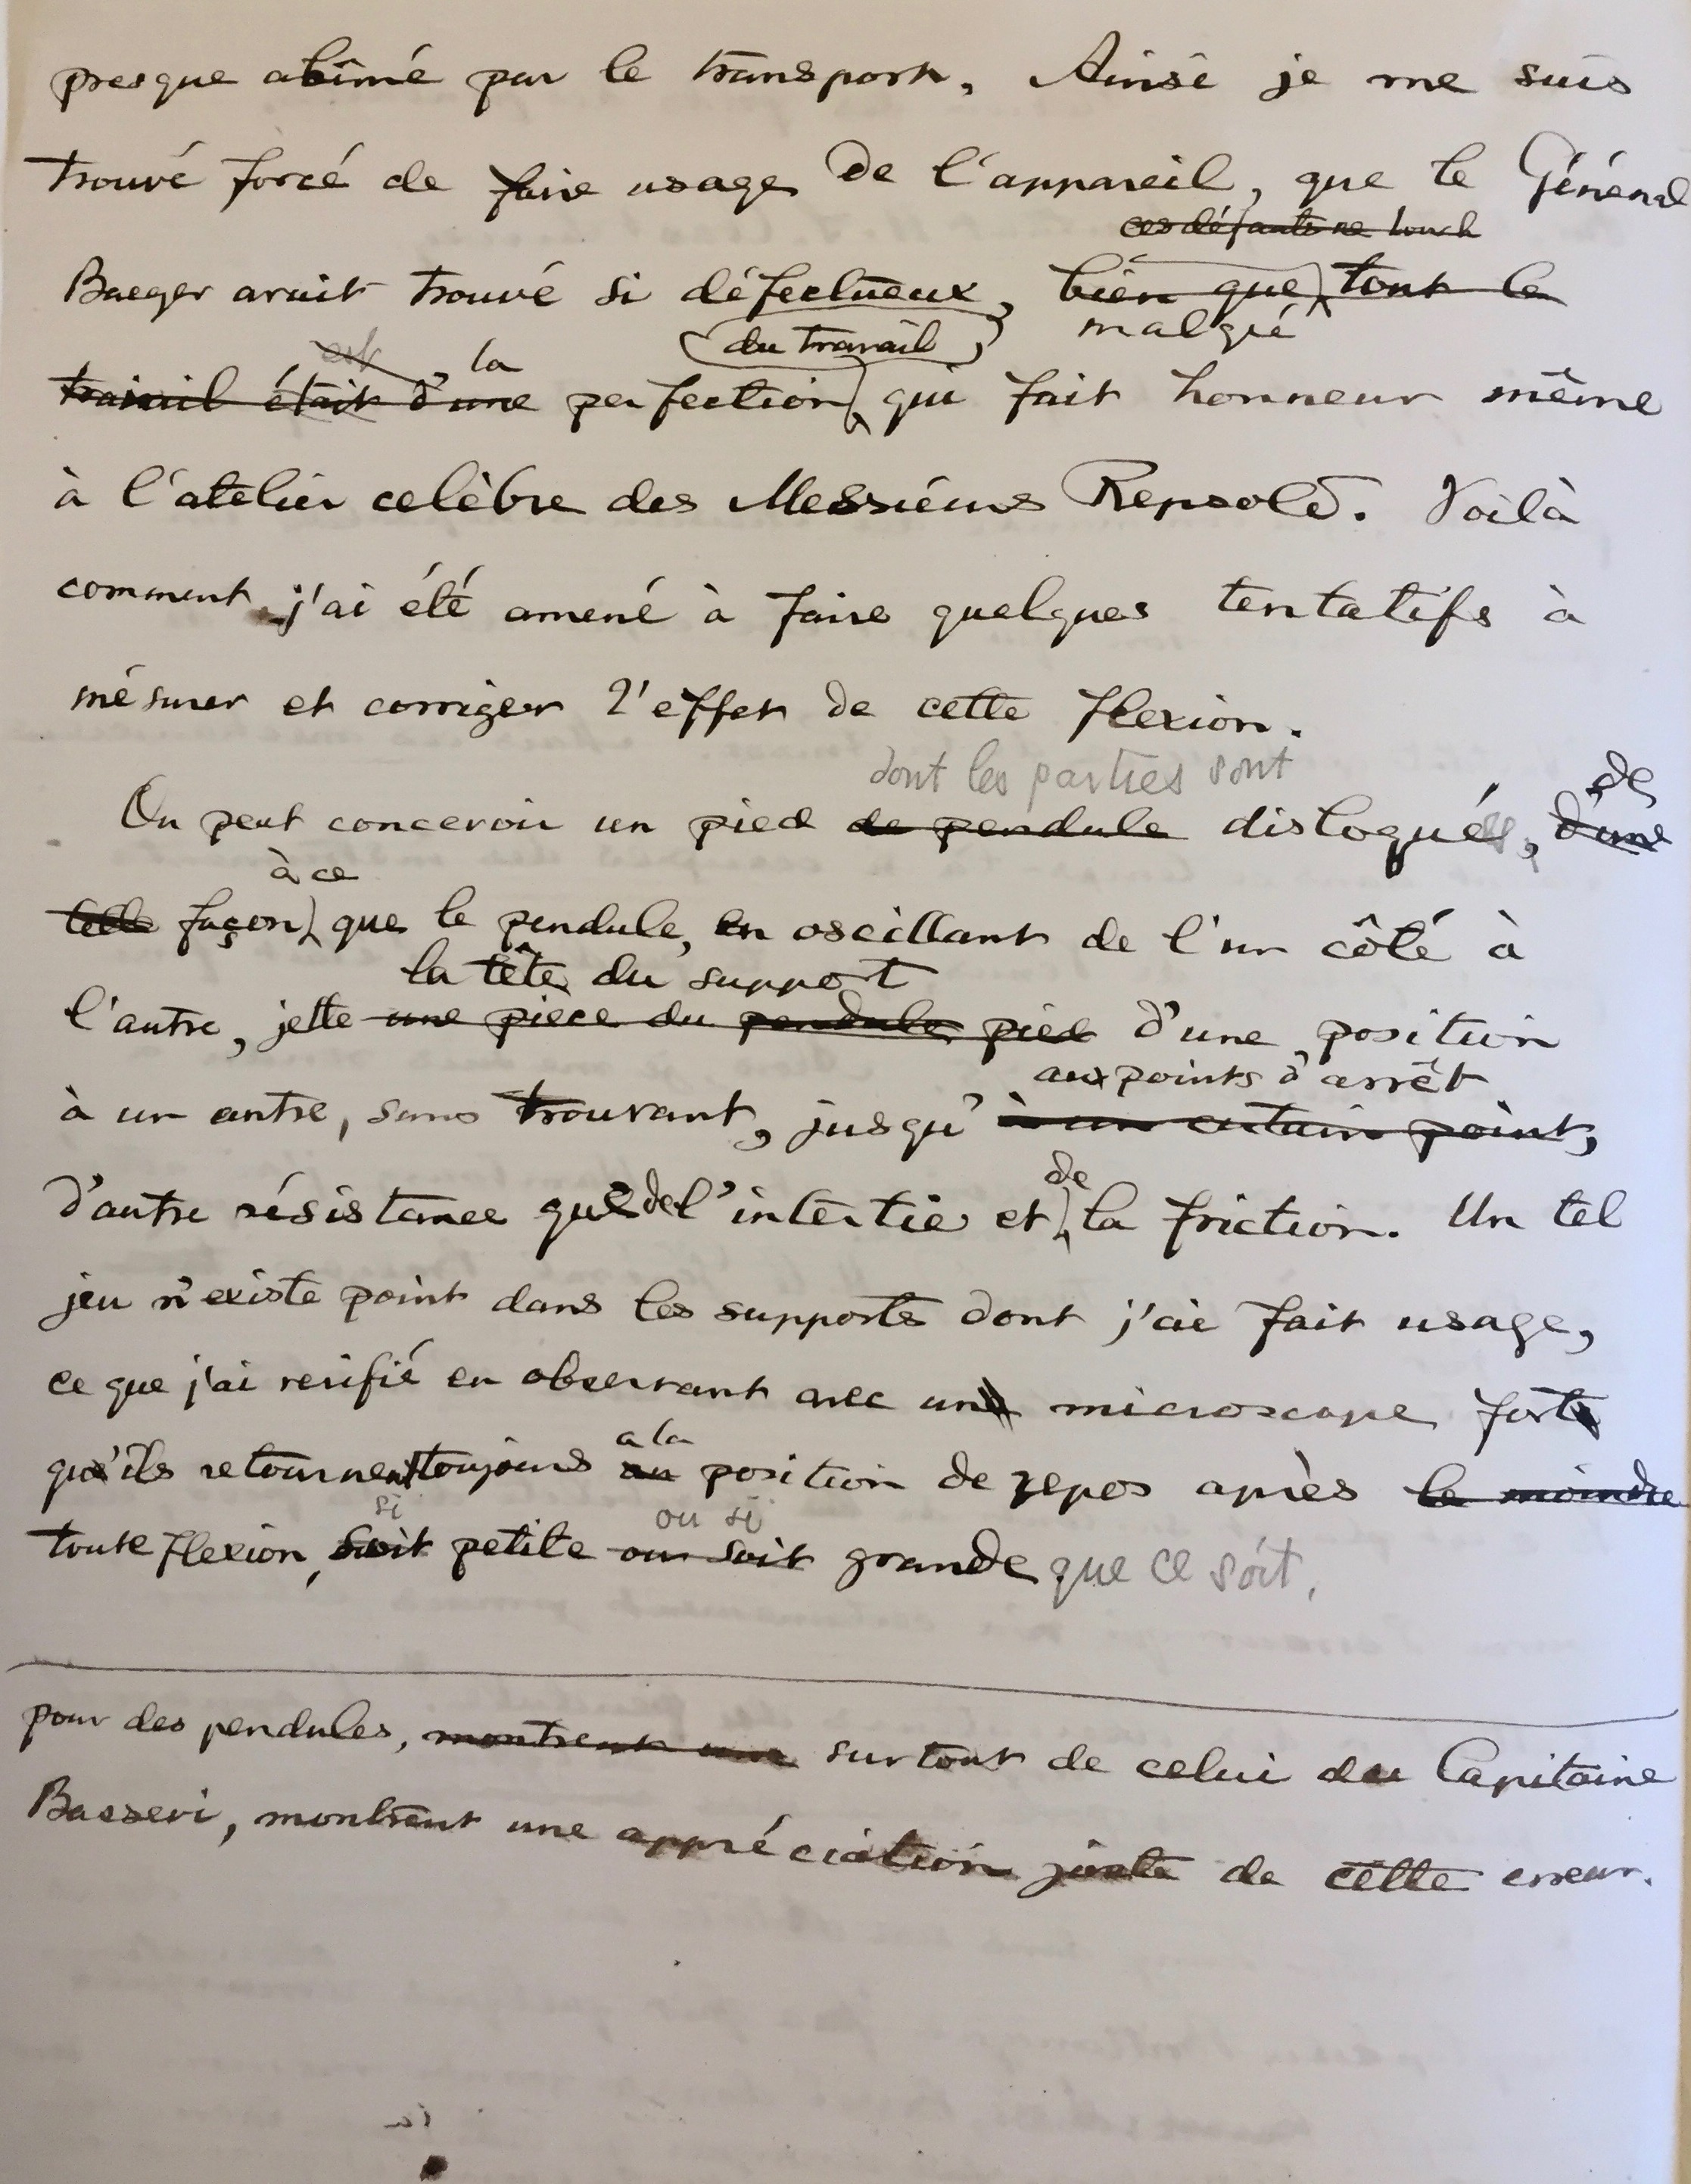 presque abîmé par le transport. Ainsi je me suis
trouvé forcé de faire usage de l'appareil, que le Général
ces défauts ne touch
Baeyer avait trouvé si défectueux, bien que tout le
malgré
du travail
est la
travail était d'une perfection qui fait honneur même
à l'atelier celèbre des Messieurs Repsold. Voilà
comment j'ai été amené à faire quelques tentatifs à
mésurer et corriger l'effet de cette flexion.
dont les parties sont
de
On peut concevoir un pied de pendule disloqués, d'une
à ce
telle façon que le pendule, en oscillant de l'un côté à
la tête du support
l'autre, jette une piece du pendule pied d'une position
aux points d'arrêt
à un autre, sans trouvant, jusqu'à un certain point,
de
d'autre résistance que de l'intertie et la friction. Un tel
jeu n'existe point dans les supports dont j'ai fait usage,
ce que j'ai verifié en observant avec une microscope forte
a la
qu'ils retournent toujours au position de repos après le moindre
si ou si
toute flexion, soit petite ou soit grande que ce soit.
pour des pendules, montrent une surtout de celui du Capitaine
Basseri, montrent une appréciation juste de cette erreur.